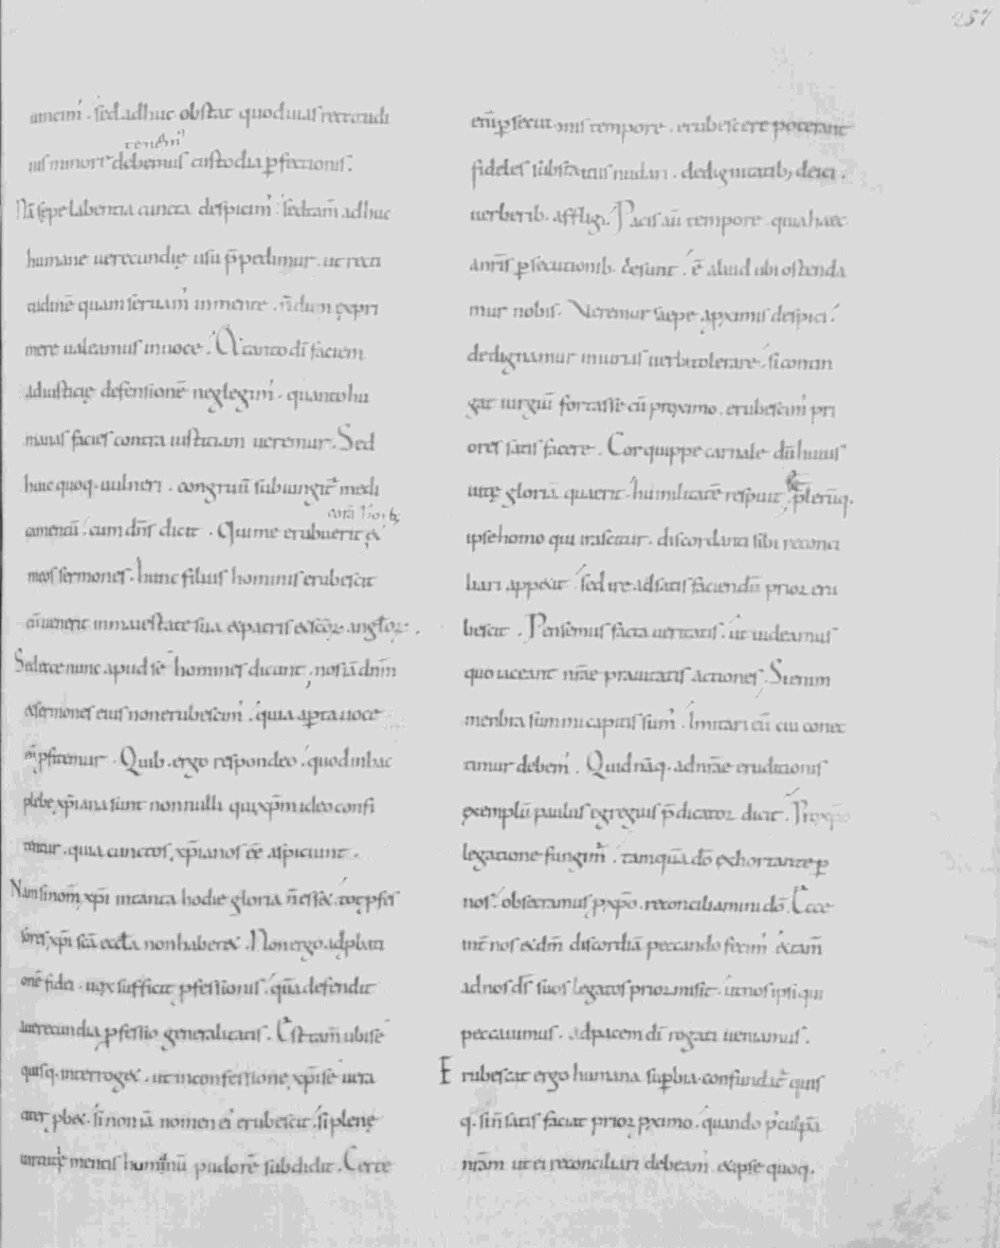 257
amcim᷒ . sed adhuc obstat quod uias rectitudi
nis in mortẽ debemus custodia ꝑfectionis.
Nã sępe labentia cuncta despicim᷒ . sed tam̃ adhuc
humane uerecundię usu p̃pedimur . ut recti
tudinẽ quam seruam᷒ in mente . ñdum expri
mere ualeamus in uoce . &tanto di͞ faciem
ad iusticię defensionẽ neglegim᷒ . quanto hu
manas facies contra iusticiam ueremur . Sed
huic quoq. uulneri . congruũ subiungit᷒ medi
coram hoĩb;
camentũ . cum dñs dicit . Qui me erubuerit &
meos sermones . hunc filius hominis erubescit
cũ uenerit in maiestate sua & patris & scõꝝ angłoꝝ .
Sed ecce nunc apud se homines dicunt , nos iã dnm̃
& sermones eius non erubescim᷒ . quia aꝑta uoce
eũ ꝓfitemur . Quib . ergo respondeo . quod in hac
plebe xp̃iana sunt nonnulli qui xp̃m ideo confi
tentur . quia cunctos xp̃ianos eẽ aspiciunt .
Nam si nom̃ xp̃i in tanta hodie gloria ñ ess& . tot ꝓfes
sores xp̃i scã eccła non haber& . Non ergo ad ꝓbati
onẽ fidei . uox sufficit ꝓfessionis . quã defendit
a uerecundia ꝓfessio generalitatis . Est tam̃ ubi se
quisq. interrog& . ut in confessione xp̃i se uera
citer ꝓb& . si non iã nomen ei᷒ erubescit . si plenę
uirtute mentis humanũ pudorẽ subdidit . Certe
enĩ ꝑsecutionis tempore . erubescere poterant
fideles substantiis nudari . dignitatib; deici .
uerberib . affligi . Pacis aũ tempore . quia haec
a nrĩs ꝑsecutionib . desunt . ẽ aliud ubi ostenda
mur nobis . Veremur saepe a ꝓximis despici .
dedignamur iniurias uerbi tolerare . si contin
gat iurgiũ fortasse cũ proximo . erubescim᷒ pri
ores satis facere . Cor quippe carnale dũ huius
uitę gloriã quaerit . humilitatẽ respuit , & plerũq.
ipse homo qui irascitur . discordanti sibi reconci
liari appetit . sed ire ad satis faciendũ prior eru
bescit . Pensemus facta ueritatis . ut uideamus
quo iaceant nr̃ae prauitatis actiones . Si enim
menbra summi capitis sum᷒ . Imitari eũ cui conec
timur debem᷒ . Quid nãq . ad nr̃ae eruditionis
exemplũ paulus egregius p̃dicator dicit . Pro xp̃o
legatione fungim᷒ . tamquã dõ exhortante ꝑ
nos . obsecramus ꝓ xp̃o . reconciliamini dõ . Ecce
int̃ nos & dm̃ discordiã peccando fecim᷒ & tam̃
ad nos ds̃ suos legatos prior misit . ut nos ipsi qui
peccauimus . ad pacem di͞ rogati ueniamus .
Erubescat ergo humana suꝑbia . confundat᷒ quis
q. si ñ satis faciat prior ꝓximo . quando p᷒ culpã
nr̃am ut ei reconciliari debeam᷒ & ipse quoq.